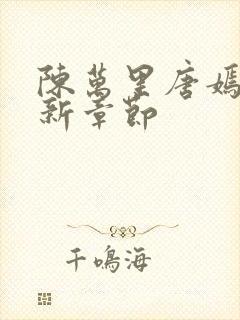 陳萬里唐嫣
新章節
千鳴海